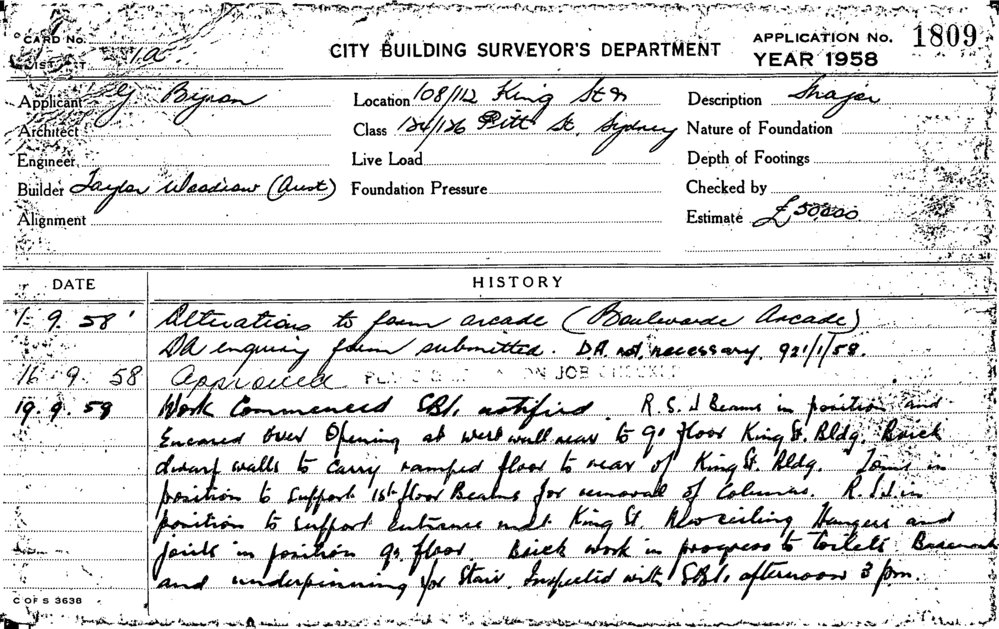 CARD No.
CITY BUILDING SURVEYOR'S DEPARTMENT
APPLICATION No. 1809
YEAR 1958
Applicant G Byron
Location 108/112 King St &
Description
Architect
Class 124/126 Pitt St. Sydney
Nature of Foundation
Engineer
Live Load
Depth of Footings
Builder Taylor Woodrow (Aust)
Foundation Pressure
Checked by
Alignment
Estimate £50,000
DATE HISTORY
1- 9. 58 Alterations to form arcade (Boulevarde Arcade)
DA enquiry form submitted. DA not necessary. 921/1/58.
16. 9. 58 Approved ON JOB CHECKED
19. 9. 58 Work Commenced SBI. notified. R.S.J Beams in position and
Encased over Opening at west wall rear to Go floor King St. Bldg. Brick
dwarf walls to carry ramped floor to rear of King St. Bldg. in
position to support 1st floor Beams for removal of Columns. R.S.J. in
position to support entrance King St. New ceiling Hangers and
joists in position Go. floor. Brick work in progress to toilets Basement
and underpinning for Stair. Inspected with SBI. afternoon 3 pm.
C OF S 3638